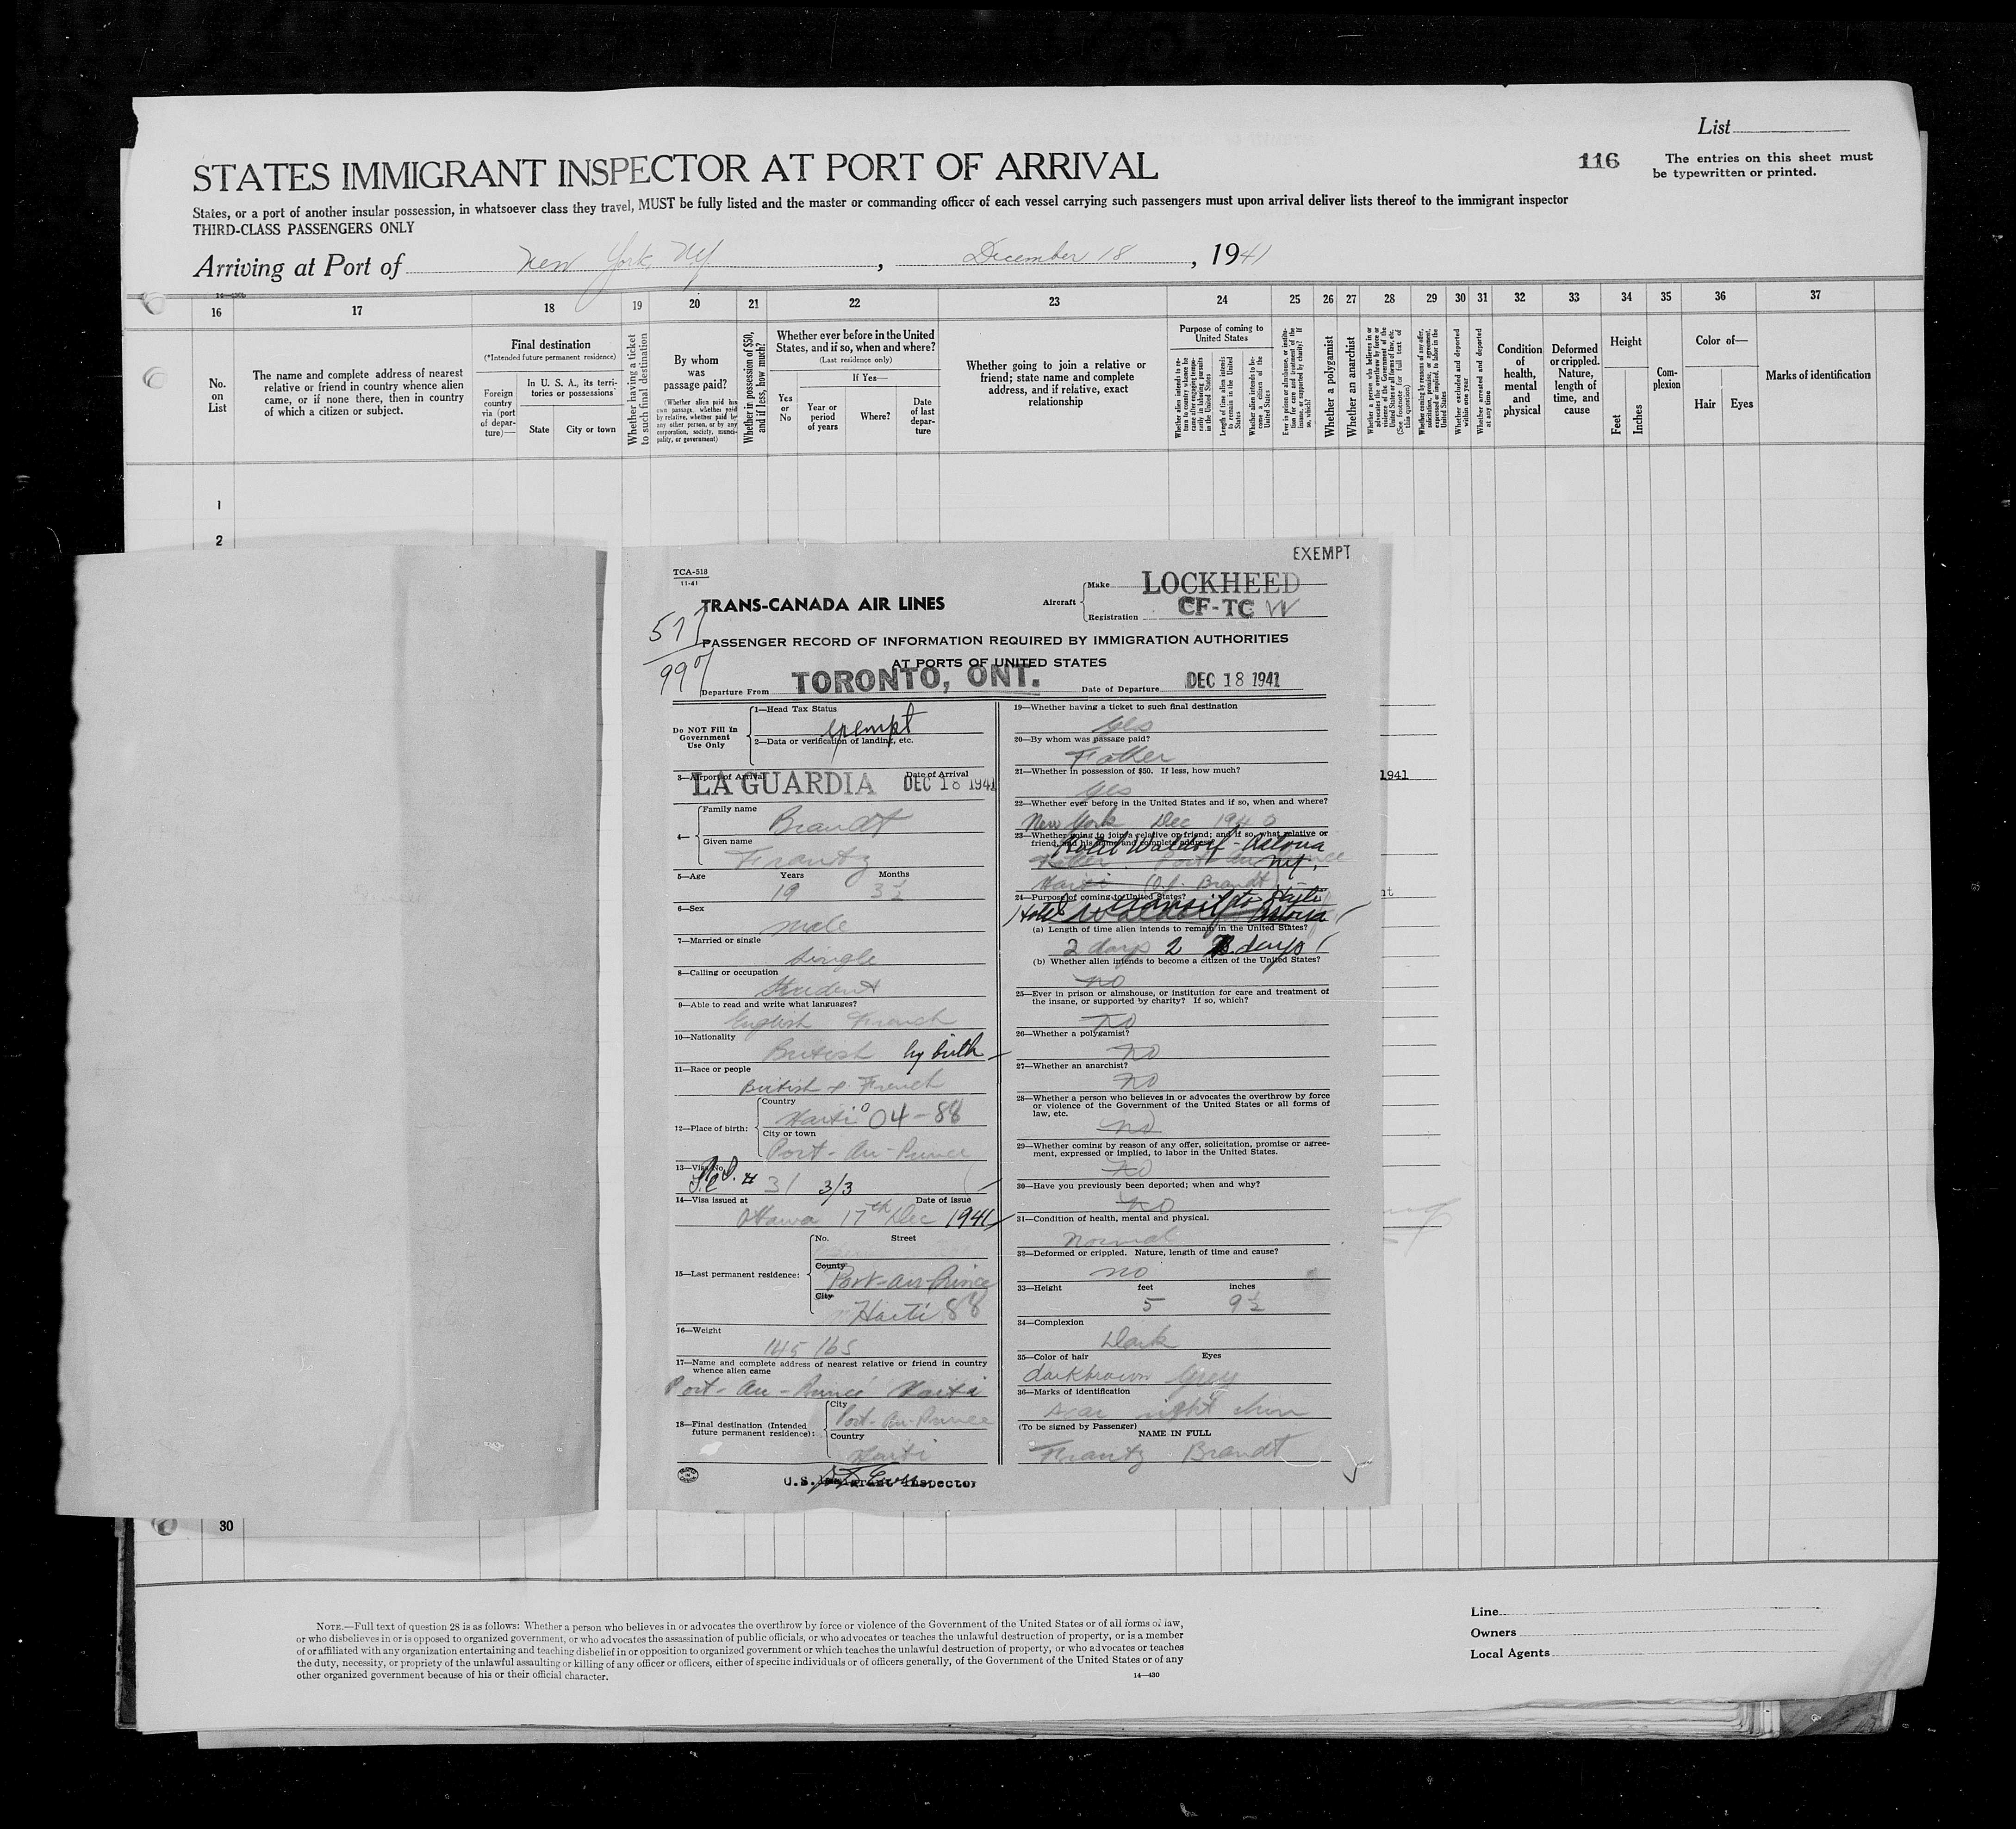 List
116
The entries on this sheet must
be typewritten or printed.
STATES IMMIGRANT INSPECTOR AT PORT OF ARRIVAL
States, or a port of another insular possession, in whatsoever class they travel, MUST be fully listed and the master or commanding officer of each vessel carrying such passengers must upon arrival deliver lists thereof to the immigrant inspector
THIRD-CLASS PASSENGERS ONLY
Arriving at Port of New York, NY, December 18, 1941
16 17 18 19 20 21 22 23 24 25 26 27 28 29 30 31 32 33 34 35 36 37
No.
on
List
The name and complete address of nearest
relative or friend in country whence alien
came, or if none there, then in country
of which a citizen or subject.
Final destination
(*Intended future permanent residence)
Foreign
country
via (port
of depar-
ture)—
In U. S. A., its terri-
tories or possessions
State
City or town
Whether having a ticket
to such final destination
By whom
was
passage paid?
(Whether alien paid his
own passage, whether paid
by relative, whether paid by
any other person, or by any
corporation, society, munici-
pality, or government)
Whether in possession of $50,
and if less, how much?
Whether ever before in the United
States, and if so, when and where?
(Last residence only)
If Yes—
Yes
or
No
Year or
period
of years
Where?
Date
of last
depar-
ture
Whether going to join a relative or
friend; state name and complete
address, and if relative, exact
relationship
Purpose of coming to
United States
Whether alien intends to re-
turn to country whence he
came after engaging tempo-
rarily in laboring pursuits
in the United States
Length of time alien intends
to remain in the United
States
Whether alien intends to be-
come a citizen of the
United States
Ever in prison or almshouse, or institu-
tion for care and treatment of the
insane, or supported by charity? If
so, which?
Whether a polygamist
Whether an anarchist
Whether a person who believes in or
advocates the overthrow by force or
violence of the Government of the
United States or all forms of law, etc.
(See footnote for full text of
this question)
Whether coming by reasons of any offer,
solicitation, promise, or agreement,
expressed or implied, to labor in the
United States
Whether excluded and deported
within one year
Whether arrested and deported
at any time
Condition
of
health,
mental
and
physical
Deformed
or crippled.
Nature,
length of
time, and
cause
Height
Feet
Inches
Com-
plexion
Color of—
Hair
Eyes
Marks of identification
1
2
EXEMPT
TCA-518
11-41
TRANS-CANADA AIR LINES
Aircraft
Make LOCKHEED
Registration CF-TC W
PASSENGER RECORD OF INFORMATION REQUIRED BY IMMIGRATION AUTHORITIES
AT PORTS OF UNITED STATES
Departure From TORONTO, ONT. Date of Departure DEC 18 1941
Do NOT Fill In
Government
Use Only
1—Head Tax Status
exempt
2—Data or verification of landing, etc.
3—Airport of Arrival Date of Arrival
LA GUARDIA DEC 18 1941
4—
Family name
Brandt
Given name
Frantz
5—Age Years Months
19 3½
6—Sex
male
7—Married or single
Single
8—Calling or occupation
Student
9—Able to read and write what languages?
English French
10—Nationality
British by birth
11—Race or people
British & French
12—Place of birth:
Country
Haiti 04-88
City or town
Port-Au-Prince
13—Visa No.
31 3/3
14—Visa issued at Date of issue
Ottawa 17th Dec 1941
15—Last permanent residence:
No. Street
County
Port-au-Prince
City
Haiti 88
16—Weight
145 lbs
17—Name and complete address of nearest relative or friend in country
whence alien came
Port-Au-Prince Haiti
18—Final destination (Intended
future permanent residence):
City
Port-Au-Prince
Country
Haiti
U.S. Immigrant Inspector
19—Whether having a ticket to such final destination
yes
20—By whom was passage paid?
Father
21—Whether in possession of $50. If less, how much?
yes
22—Whether ever before in the United States and if so, when and where?
New York Dec 1940
23—Whether going to join a relative or friend; and if so, what relative or
friend, and his name and complete address?
Hotel Waldorf-Astoria
NY,
Father Port-Au-Prince
Haiti (O.J. Brandt)
24—Purpose of coming to United States?
transit to Haiti
Hotel Waldorf Astoria
(a) Length of time alien intends to remain in the United States?
2 days 2 days
(b) Whether alien intends to become a citizen of the United States?
no
25—Ever in prison or almshouse, or institution for care and treatment of
the insane, or supported by charity? If so, which?
no
26—Whether a polygamist?
no
27—Whether an anarchist?
no
28—Whether a person who believes in or advocates the overthrow by force
or violence of the Government of the United States or all forms of
law, etc.
no
29—Whether coming by reason of any offer, solicitation, promise or agree-
ment, expressed or implied, to labor in the United States.
no
30—Have you previously been deported; when and why?
no
31—Condition of health, mental and physical.
normal
32—Deformed or crippled. Nature, length of time and cause?
no
33—Height feet inches
5 9½
34—Complexion
Dark
35—Color of hair Eyes
darkbrown Grey
36—Marks of identification
scar right chin
(To be signed by Passenger)
NAME IN FULL
Frantz Brandt
1941
30
NOTE.—Full text of question 28 is as follows: Whether a person who believes in or advocates the overthrow by force or violence of the Government of the United States or of all forms of law,
or who disbelieves in or is opposed to organized government, or who advocates the assassination of public officials, or who advocates or teaches the unlawful destruction of property, or is a member
of or affiliated with any organization entertaining and teaching disbelief in or opposition to organized government or which teaches the unlawful destruction of property, or who advocates or teaches
the duty, necessity, or propriety of the unlawful assaulting or killing of any officer or officers, either of specific individuals or of officers generally, of the Government of the United States or of any
other organized government because of his or their official character.
14—430
Line
Owners
Local Agents